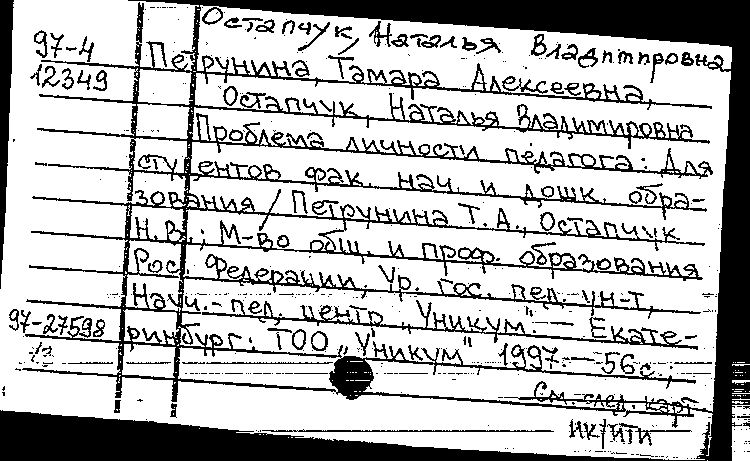 Остапчук, Наталья Владимировна
97-4
12349
Петрунина, Тамара Алексеевна,
Остапчук, Наталья Владимировна
Проблема личности педагога: Для
студентов фак. нач. и дошк. обра-
зования / Петрунина Т.А., Остапчук
Н.В.; М-во общ. и проф. образования
Рос. Федерации, Ур. гос. пед. ун-т,
Науч.-пед. центр "Уникум". — Екате-
97-27598
ринбург: ТОО "Уникум", 1997. — 56 с.;
См. след. карт